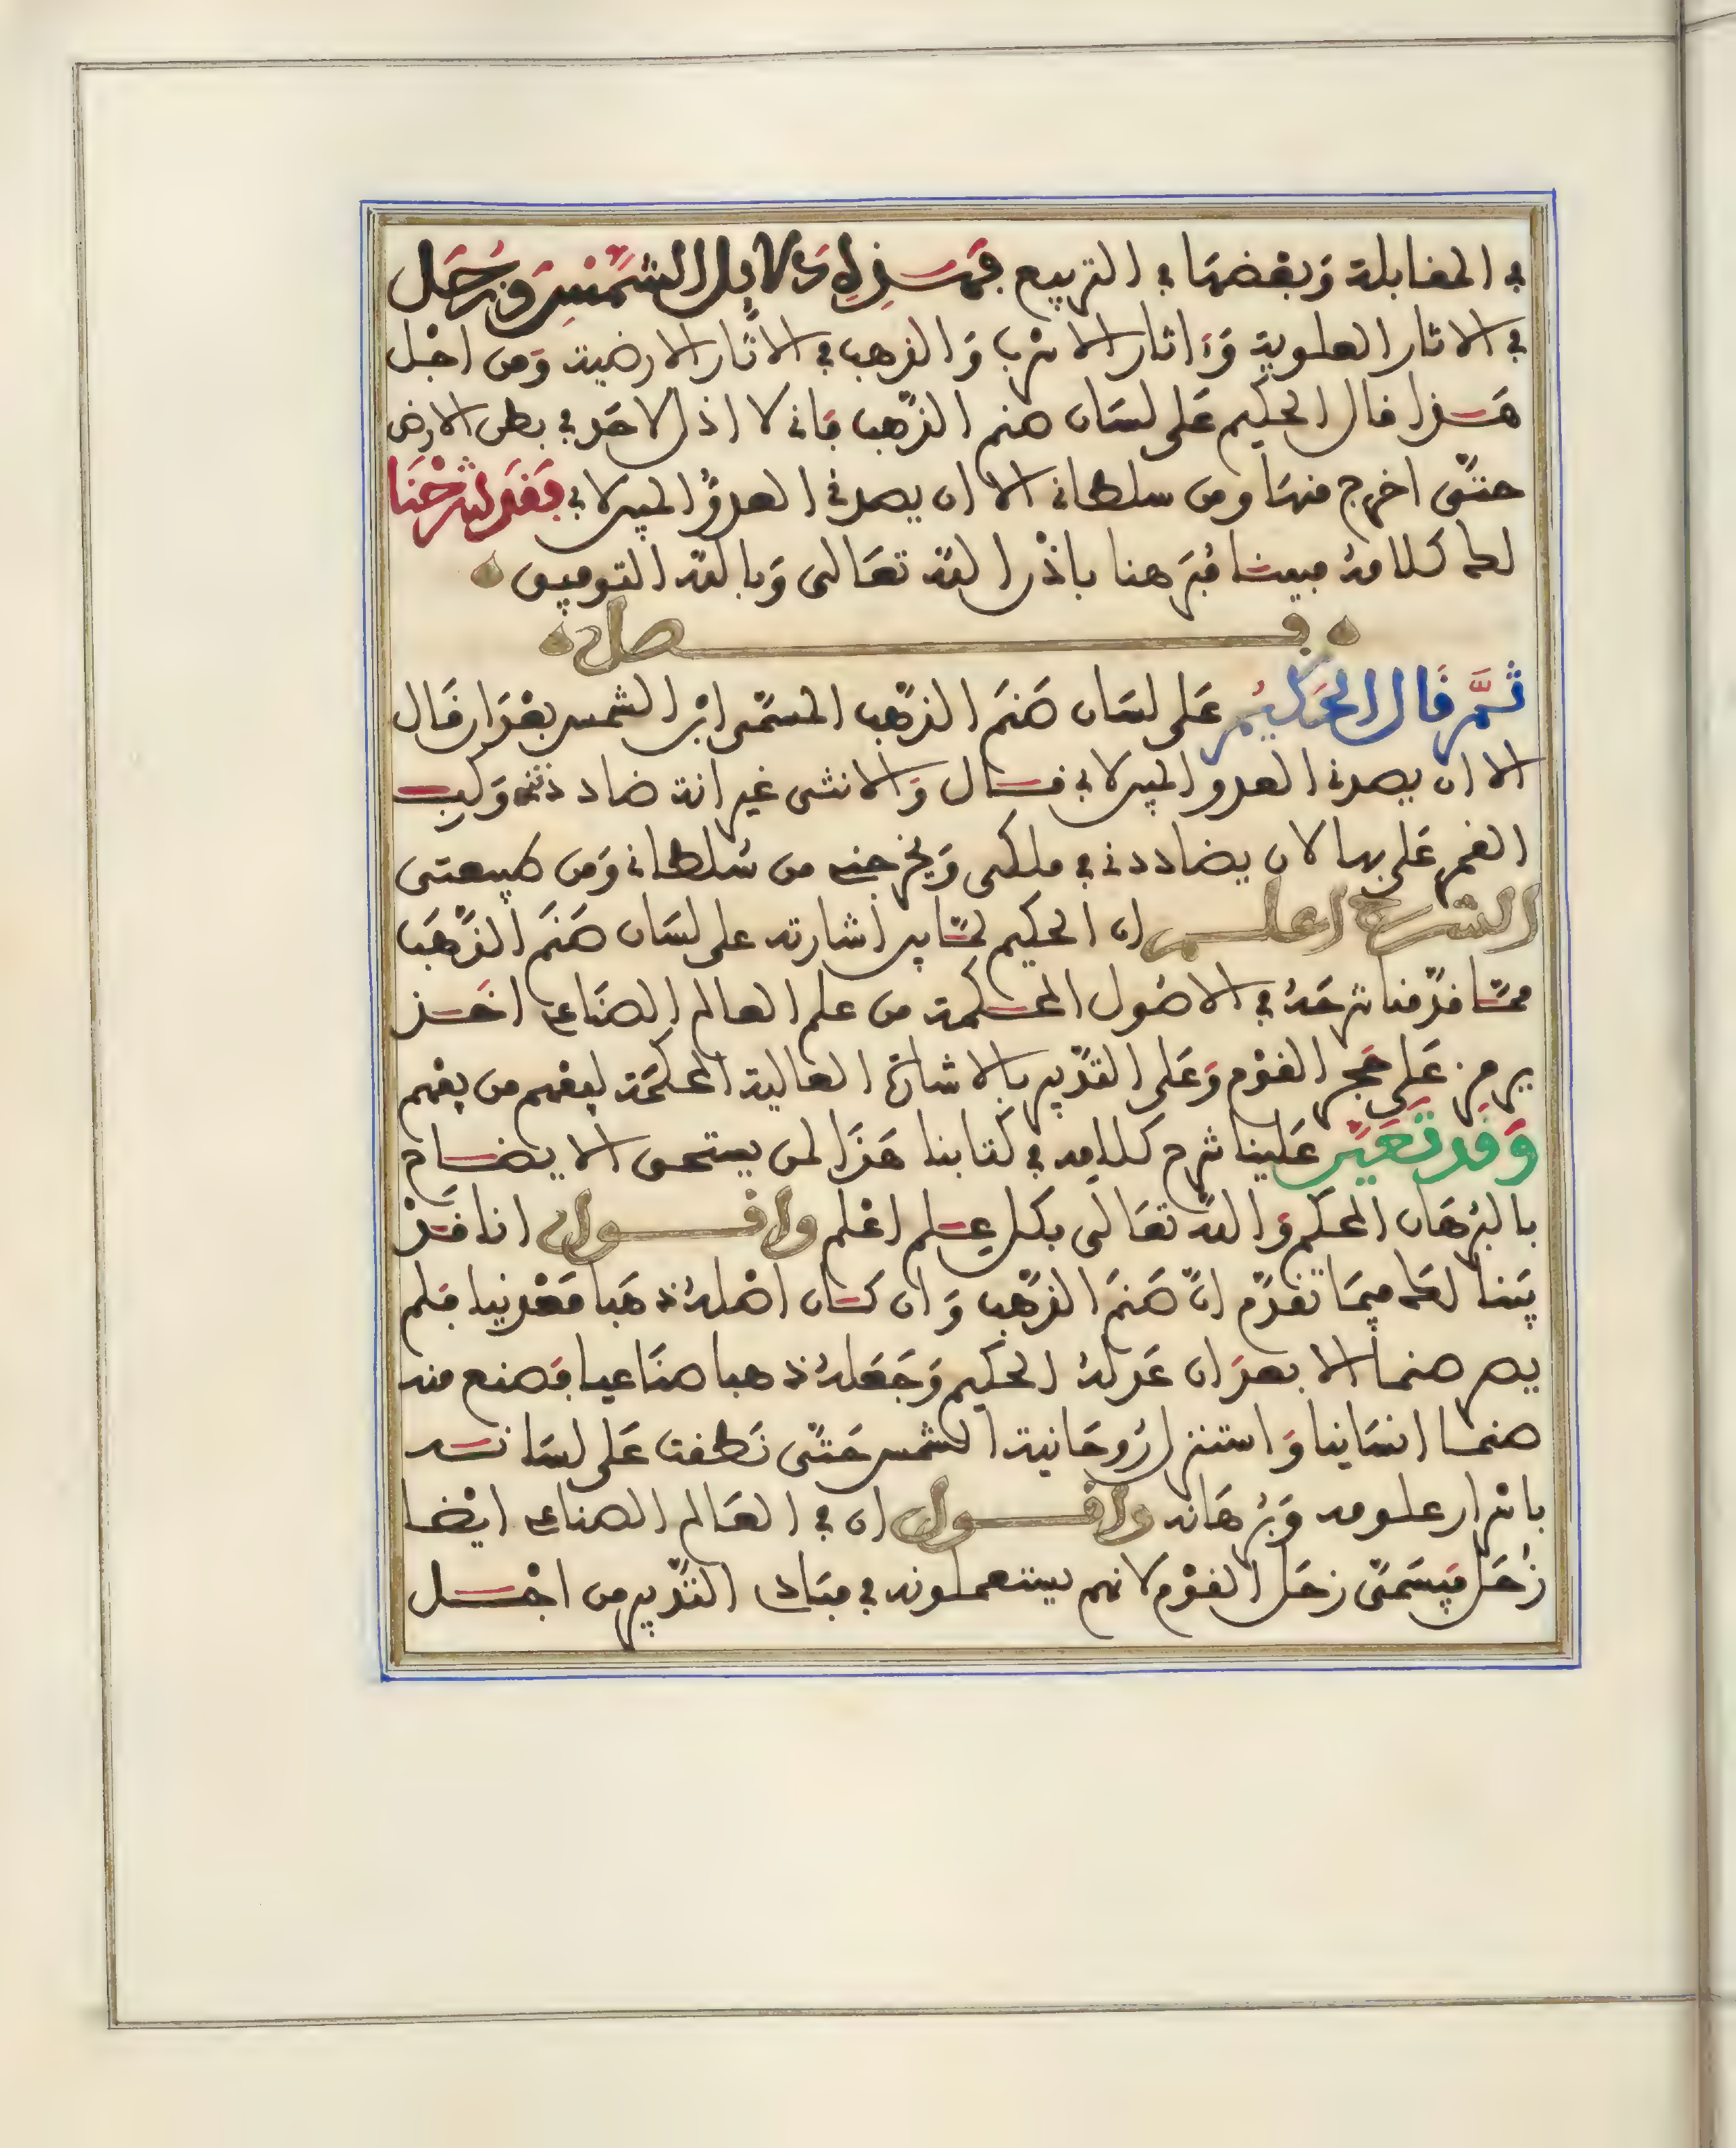 في المقابلة وبعضها في التربيع فهذه دلايل الشمس وزحل
في الاثار العلوية واثار الاسرب والذهب في الاثار الارضية ومن اجل
هذا قال الحكيم على لسان صنم الذهب فاني لا اذل لاحد في بطن الارض
حتى اخرج منها ومن سلطاني الا ان يصدني العدو المبير لاني فقد شرحنا
لك كلامه مبينا مبرهنا باذن الله تعالى وبالله التوفيق
فصل
ثم قال الحكيم على لسان صنم الذهب المسمى ابن الشمس بعد ان قال
الا ان يصدني العدو المبير لاني قال والانثى غير انه ضاد وكيت
القمر على بها لان يضاددني في ملكي ويخرجني من سلطاني ومن طبيعتي
الشرح اعلم ان الحكيم لما بين اشارته على لسان صنم الذهب
مما قدمنا شرحه في الاصول المحكمة من علم العالم الصناعي اخذ
يرمز على حجر القوم وعلى التدبير بالاشارة العالية المحكمة ليفهم من يفهم
وقد تعين علينا شرح كلامه في كتابنا هذا لمن يستحق الايضاح
بالبرهان المحكم والله تعالى بكل علم اعلم واقول انا قد
بينا لك فيما تقدم ان صنم الذهب وان كان اصله ذهبا معدنيا فلم
يصر صنما الا بعد ان عدله الحكيم وجعله ذهبا صناعيا فصنع منه
صنما انسانيا واستنزل روحانية الشمس حتى نطقت على لسانه
باسرار علومه وبرهانه واقول ان في العالم الصناعي ايضا
زحل فيسمى زحل القوم لانهم يستعملونه في مبادي التدبير من اجل